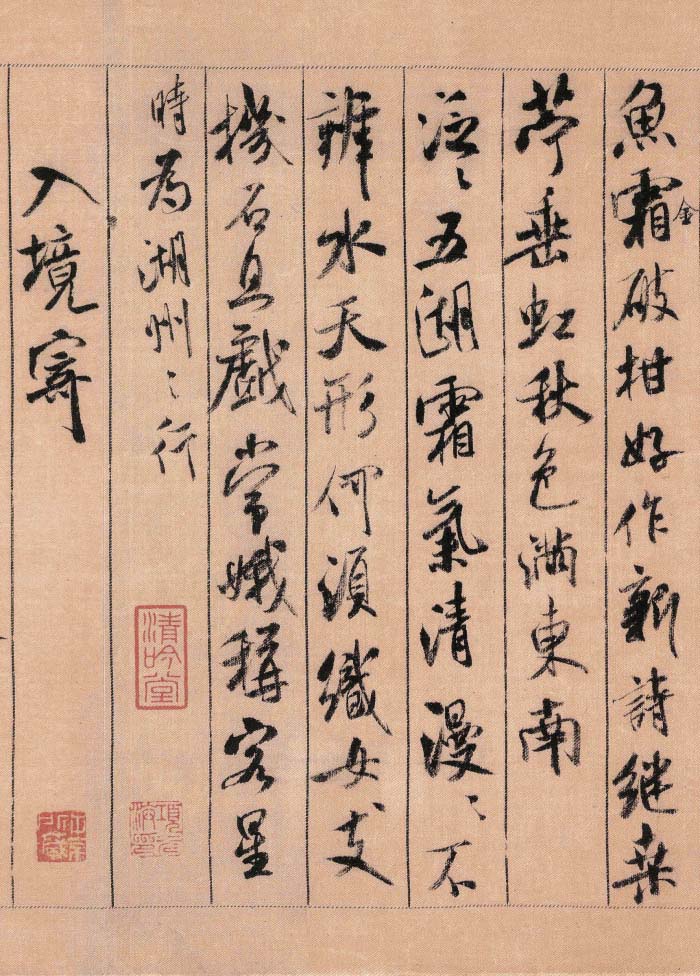 魚霜破柑好作新詩繼桑
金
苧垂虹秋色滿東南
泛〻五湖霜氣清漫〻不
辨水天形何須織女支
機石且戲常娥稱客星
時為湖州之行
清吟堂
入境寄